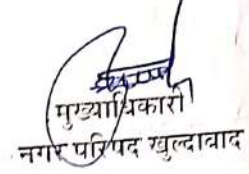 मुख्याधिकारी
नगर परिषद खुल्दाबाद